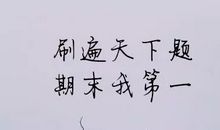 刷遍天下题
期末我第一